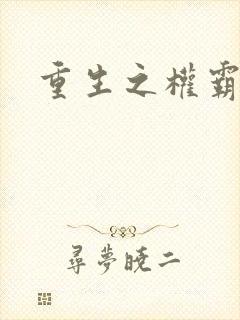 重生之權霸
尋夢曉二